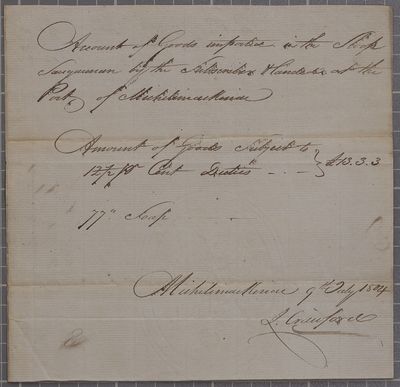 Account of Goods imported in the Sloop
Saugeuman by the Subscriber & landed at the
Port of Michilimackinac
Amount of Goods Subject to
12½ pr Cent Duties - . . - } £13.3.3
77" Soap -
Michilimackinac 9th July 1804
J. Crawford